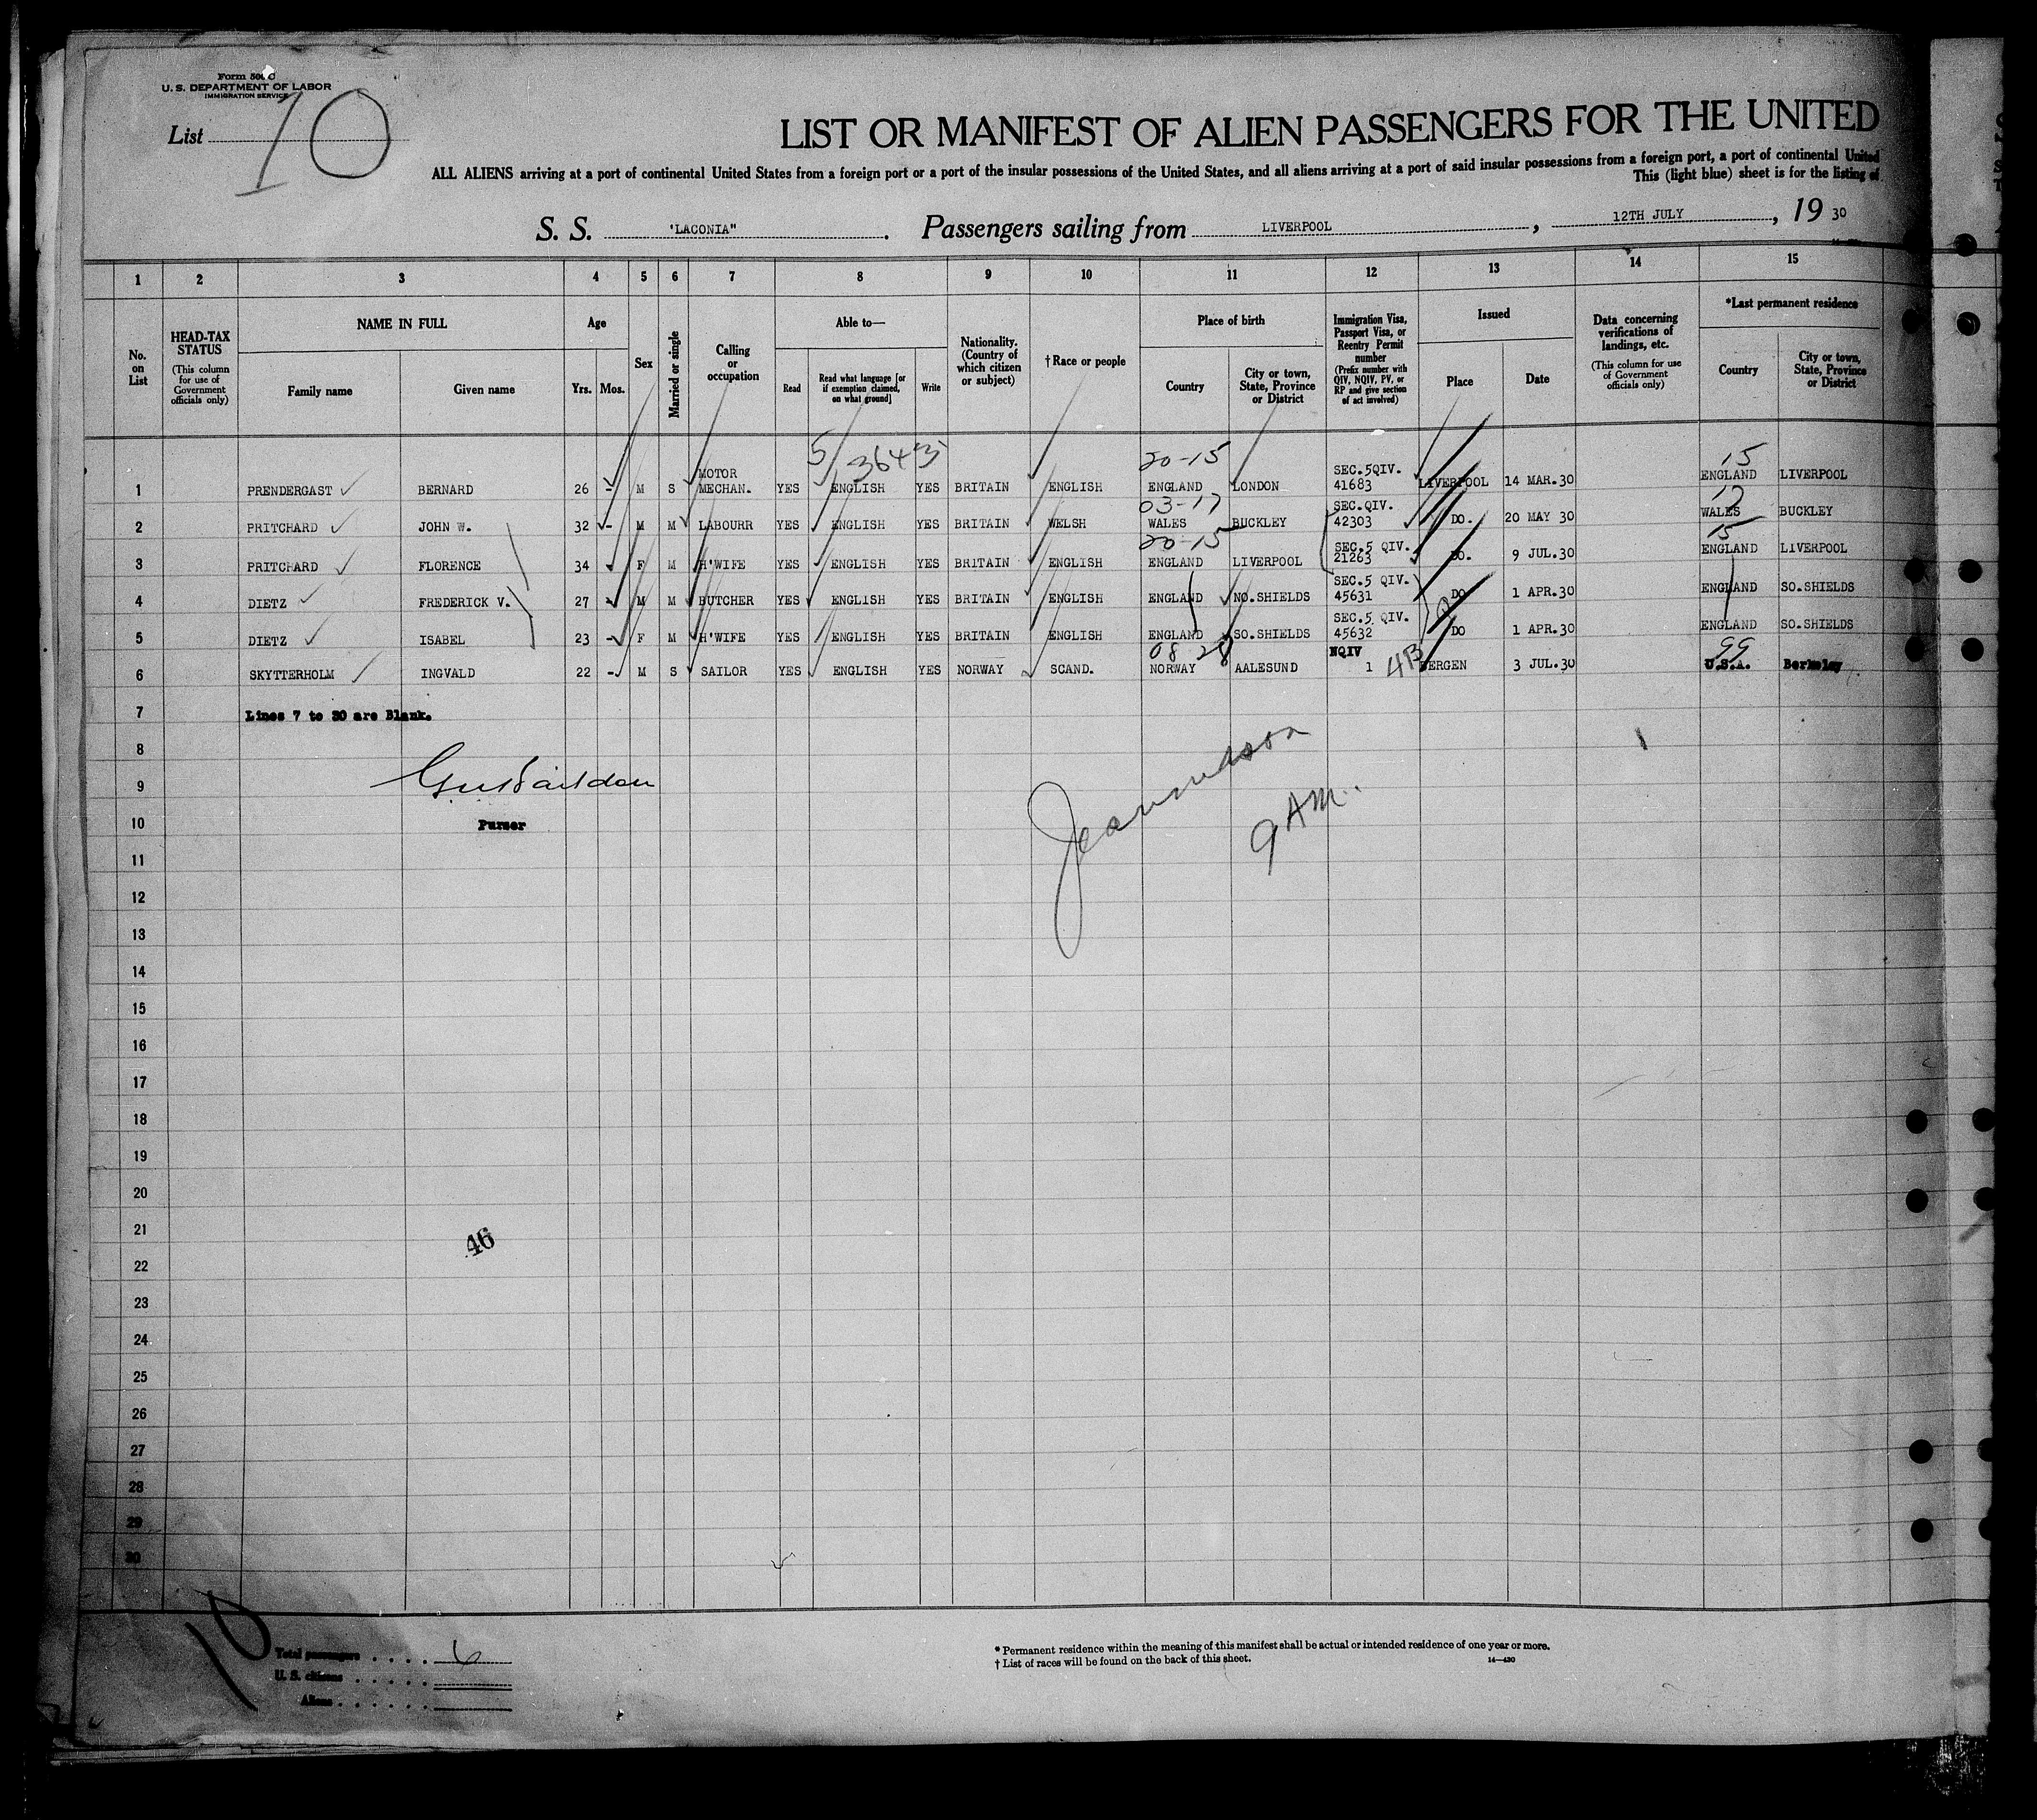 Form 500 C
U. S. DEPARTMENT OF LABOR
IMMIGRATION SERVICE
List 10
LIST OR MANIFEST OF ALIEN PASSENGERS FOR THE UNITED
ALL ALIENS arriving at a port of continental United States from a foreign port or a port of the insular possessions of the United States, and all aliens arriving at a port of said insular possessions from a foreign port, a port of continental United
This (light blue) sheet is for the listing of
S. S. "LACONIA". Passengers sailing from LIVERPOOL, 12TH JULY, 19 30
1 2 3 4 5 6 7 8 9 10 11 12 13 14 15
No. on List
HEAD-TAX STATUS (This column for use of Government officials only)
NAME IN FULL
Family name Given name
Age
Yrs. Mos.
Sex
Married or single
Calling or occupation
Able to—
Read Read what language [or if exemption claimed, on what ground] Write
Nationality. (Country of which citizen or subject)
† Race or people
Place of birth
Country City or town, State, Province or District
Immigration Visa, Passport Visa, or Reentry Permit number (Prefix number with QIV, NQIV, PV, or RP and give section of act involved)
Issued
Place Date
Data concerning verifications of landings, etc. (This column for use of Government officials only)
*Last permanent residence
Country City or town, State, Province or District
5 3643 20-15 15
1 PRENDERGAST BERNARD 26 - M S MOTOR MECHAN. YES ENGLISH YES BRITAIN ENGLISH ENGLAND LONDON SEC.5QIV. 41683 LIVERPOOL 14 MAR.30 ENGLAND LIVERPOOL
03-17 17
2 PRITCHARD JOHN W. 32 - M M LABOURR YES ENGLISH YES BRITAIN WELSH WALES BUCKLEY SEC.QIV. 42303 DO. 20 MAY 30 WALES BUCKLEY
20-15 15
3 PRITCHARD FLORENCE 34 F M H'WIFE YES ENGLISH YES BRITAIN ENGLISH ENGLAND LIVERPOOL SEC.5 QIV. 21263 DO. 9 JUL.30 ENGLAND LIVERPOOL
4 DIETZ FREDERICK V. 27 - M M BUTCHER YES ENGLISH YES BRITAIN ENGLISH ENGLAND NO.SHIELDS SEC.5 QIV. 45631 DO 1 APR.30 ENGLAND SO.SHIELDS
5 DIETZ ISABEL 23 - F M H'WIFE YES ENGLISH YES BRITAIN ENGLISH ENGLAND SO.SHIELDS SEC.5 QIV. 45632 DO 1 APR.30 ENGLAND SO.SHIELDS
08 4B 99
6 SKYTTERHOLM INGVALD 22 - M S SAILOR YES ENGLISH YES NORWAY SCAND. NORWAY AALESUND NQIV 1 BERGEN 3 JUL.30 U.S.A. Berkeley
7 Lines 7 to 30 are Blank.
8
9
10 Purser
9 AM.
11
12
13
14
15
16
17
18
19
20
21
46
22
23
24
25
26
27
28
29
30
10
Total passengers . . . . 6
U. S. citizens . . . . .
Aliens . . . . . .
* Permanent residence within the meaning of this manifest shall be actual or intended residence of one year or more.
† List of races will be found on the back of this sheet.
14—430